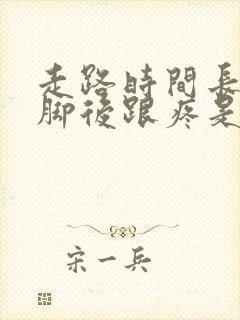 走路時間長
脚後跟疼是
宋一兵